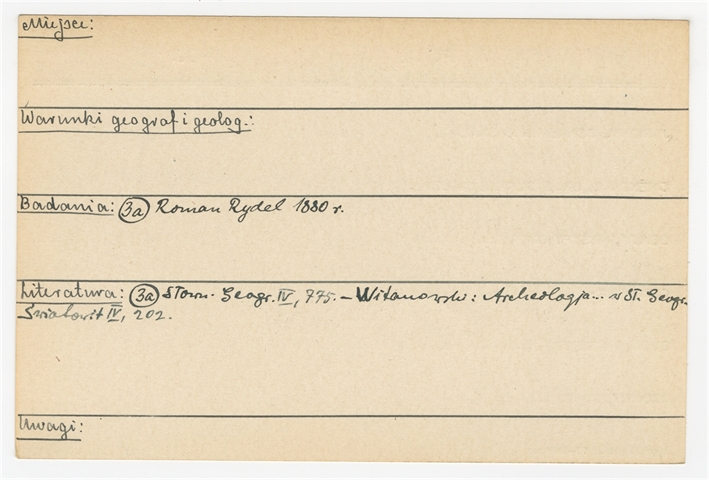 Miejsce:
Warunki geograf i geolog.:
Badania: 3a Roman Rydel 1880 r.
Literatura: 3a Słown. Geogr. IV, 775. – Witanowski: Archeologja... w Sł. Geogr.
Światowit IV, 202.
Uwagi: